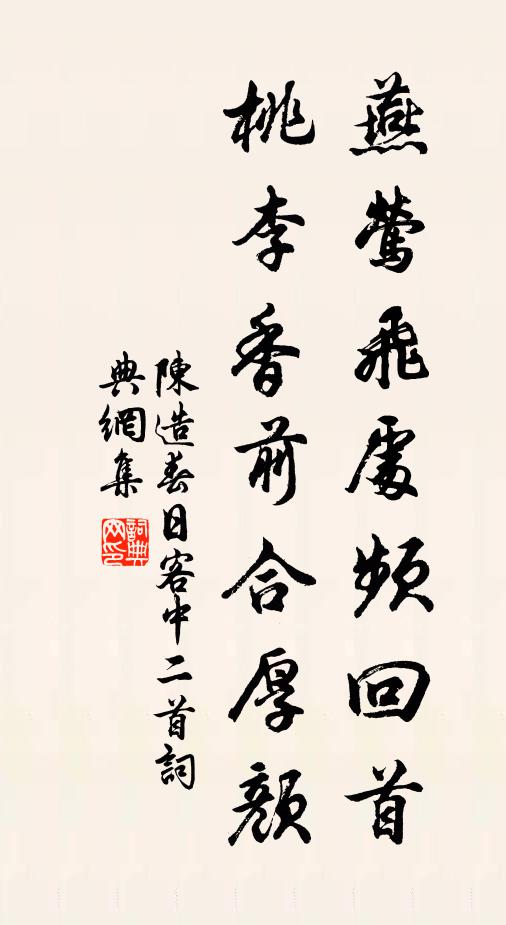 燕鶯飛處頻回首
桃李香前合厚顏
陳造春日客中二首詞
典網集
詞典网印